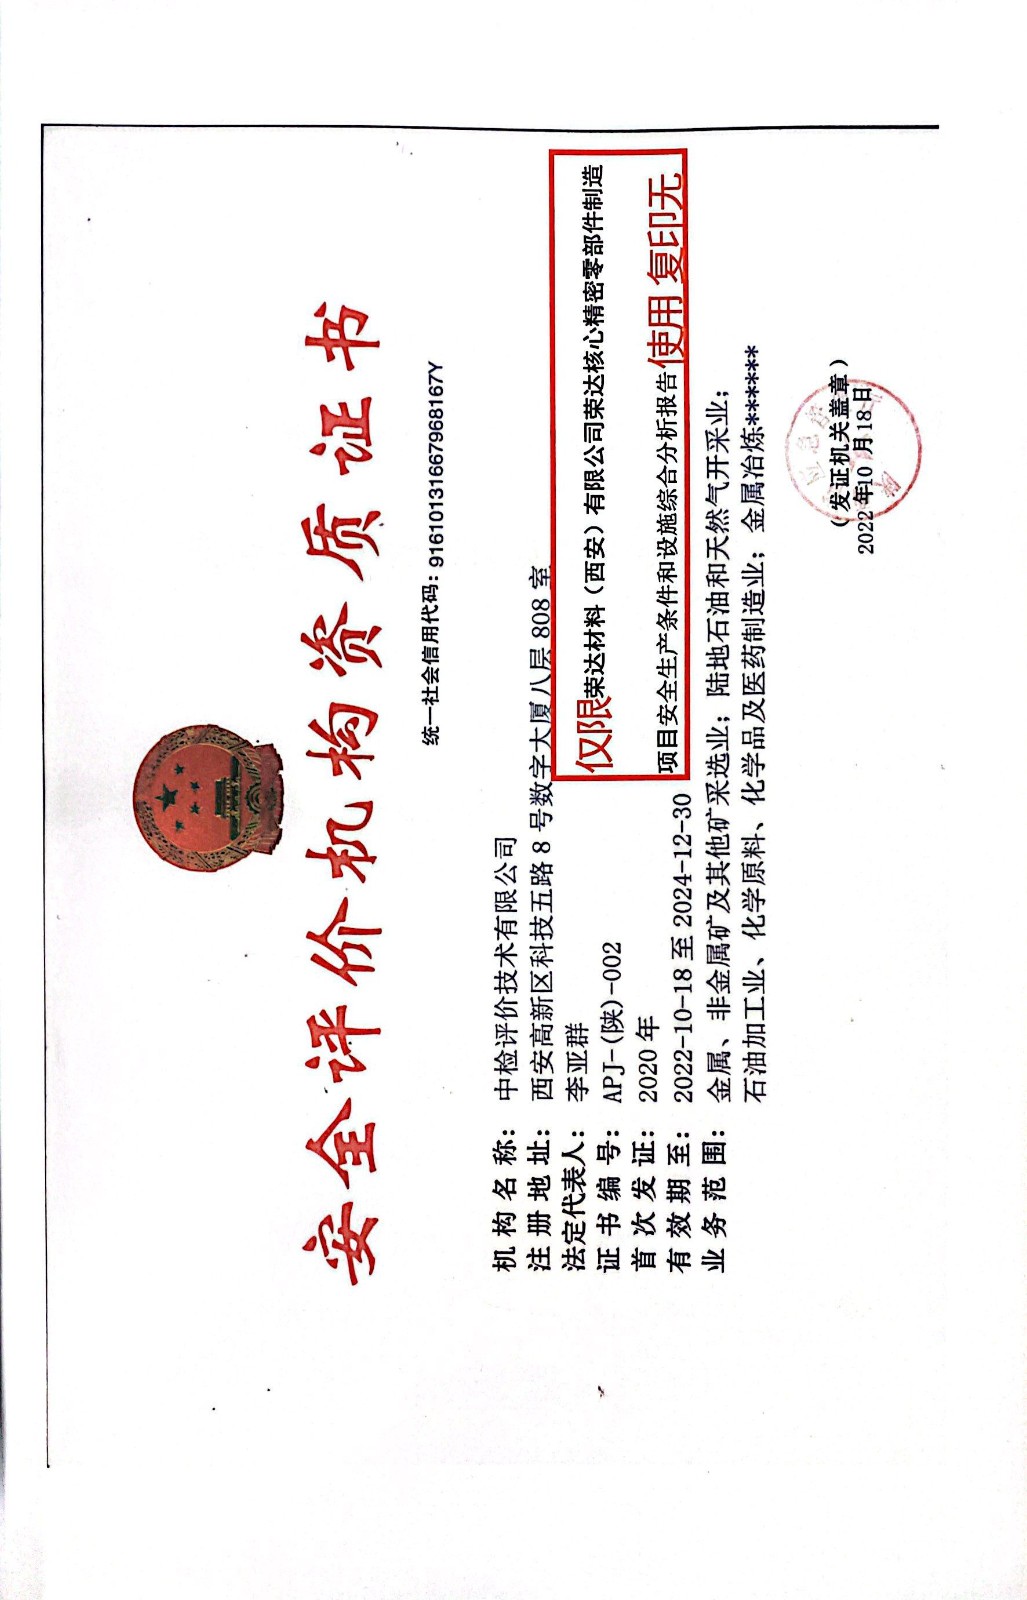 安全评价机构资质证书
统一社会信用代码：91610131667968167Y
机构名称： 中检评价技术有限公司
注册地址： 西安高新区科技五路8号数字大厦八层808室
法定代表人： 李亚群
证书编号： APJ-(陕)-002
首次发证： 2020年
有效期至： 2022-10-18至2024-12-30
业务范围： 金属、非金属矿及其他矿采选业；陆地石油和天然气开采业；
石油加工业、化学原料、化学品及医药制造业；金属冶炼******
仅限荣达材料（西安）有限公司荣达核心精密零部件制造
项目安全生产条件和设施综合分析报告使用 复印无
（发证机关盖章）
2022年10月18日